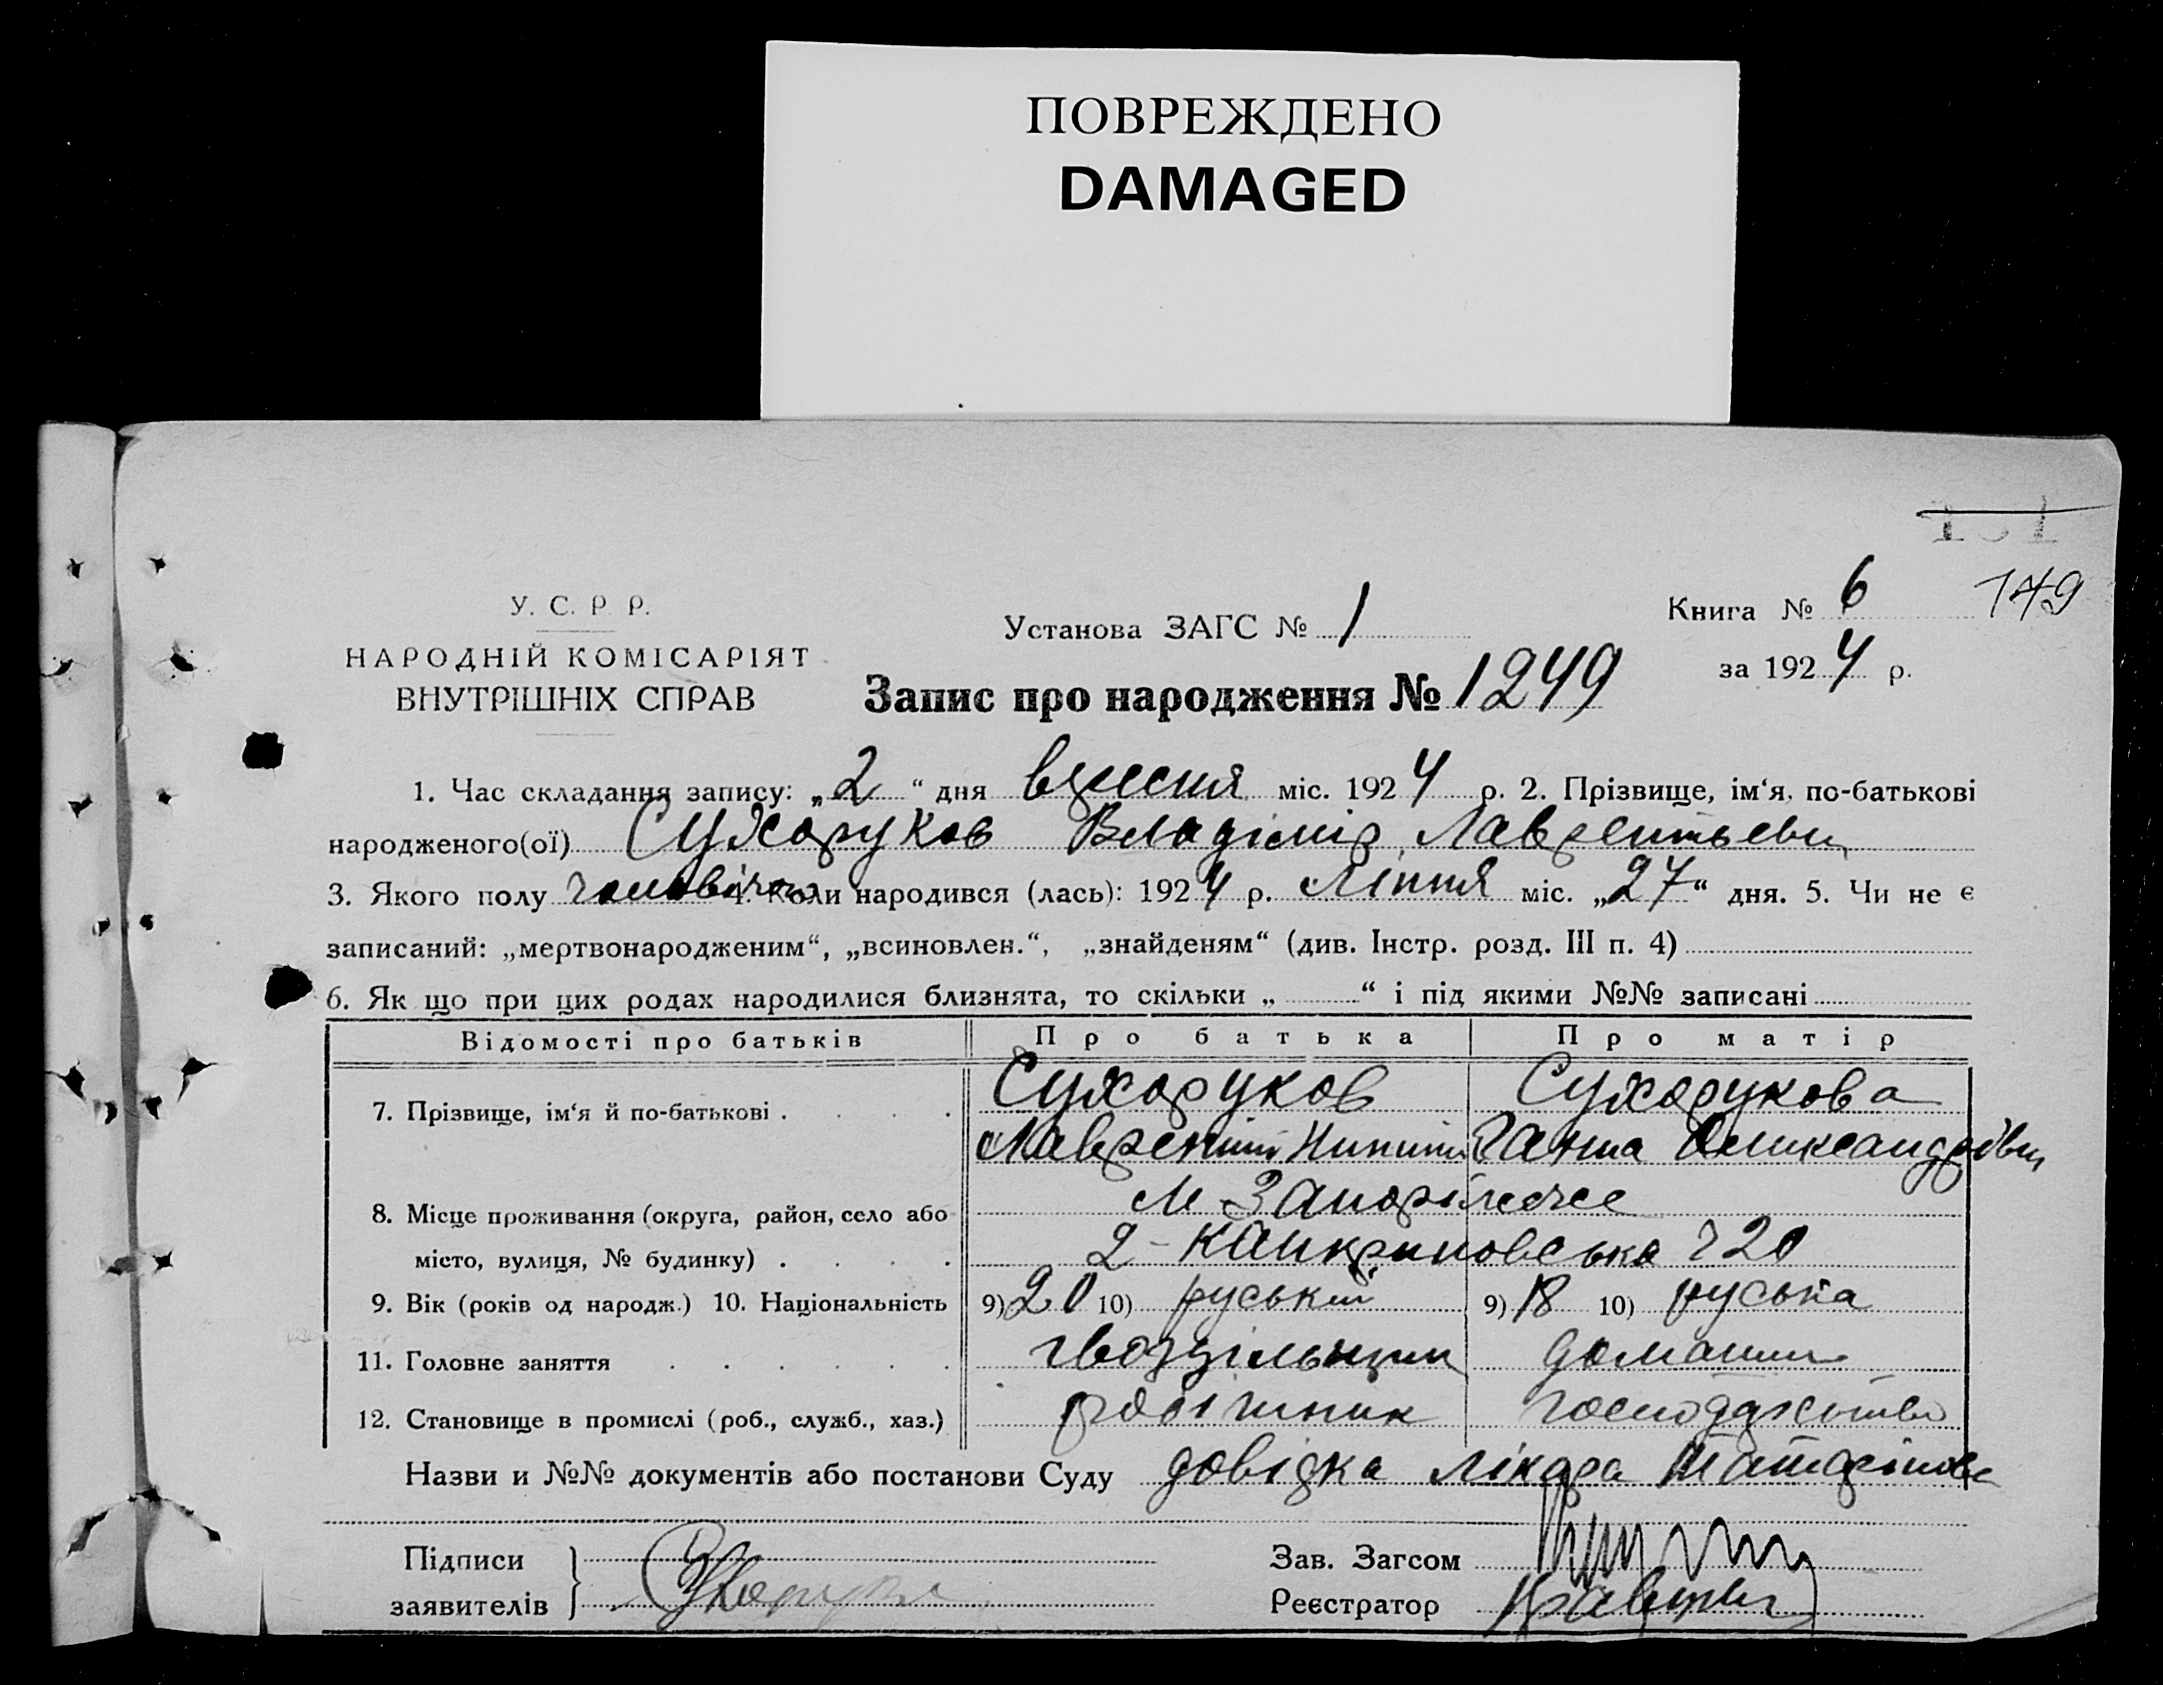 ПОВРЕЖДЕНО
DAMAGED
149
У. С. Р. Р.
НАРОДНІЙ КОМІСАРІЯТ
ВНУТРІШНІХ СПРАВ
Установа ЗАГС № 1
Книга № 6
за 1924 р.
Запис про народження № 1249
1. Час складання запису: „2“ дня вересня міс. 1924 р. 2. Прізвище, ім‘я, по-батькові
народженого(ої) Сухоруков Владімір Лаврентьевич
3. Якого полу чоловічого 4. Коли народився (лась): 1924 р. Ліпня міс. „27“ дня. 5. Чи не є
записаний: „мертвонародженим“, „всиновлен.“, „знайденям“ (див. Інстр. розд. III п. 4)
6. Як що при цих родах народилися близнята, то скільки „ “ і під якими №№ записані
Відомості про батьків Про батька Про матір
7. Прізвище, ім‘я й по-батькові Сухоруков Сухорукова
Лаврентій Ганна Олександрівн
8. Місце проживання (округа, район, село або М Запоріжжє
місто, вулиця, № будинку) 2-Канкриновська ч 20
9. Вік (років од народж.) 10. Національність 9) 20 10) руський 9) 18 10) руська
11. Головне заняття гвоздільщик домашнє
12. Становище в промислі (роб., служб., хаз.) робітник господарство
Назви и №№ документів або постанови Суду довідка лікара
Підписи
заявителів
Зав. Загсом
Реєстратор